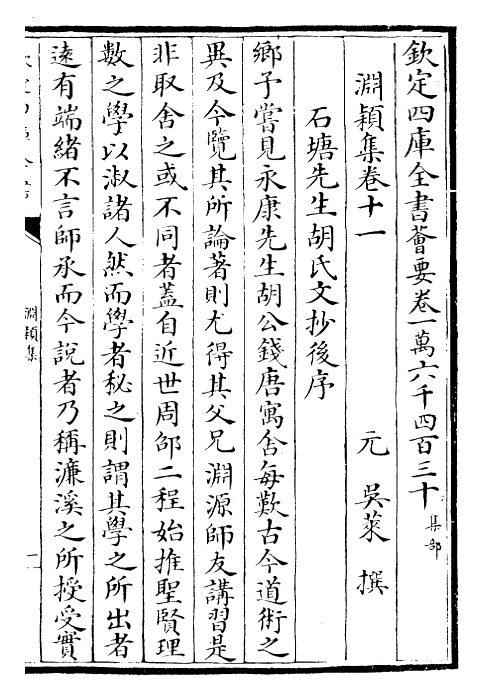 欽定四庫全書薈要卷一萬六千四百三十集部
淵穎集卷十一
元 吳萊 撰
石塘先生胡氏文抄後序
鄉予嘗見永康先生胡公錢唐寓舍每歎古今道術之
異及今覽其所論著則尤得其父兄淵源師友講習是
非取舍之或不同者蓋自近世周邵二程始推聖賢理
數之學以淑諸人然而學者秘之則謂其學之所出者
逺有端緒不言師承而今說者乃稱濂溪之所授受實
淵穎集
一